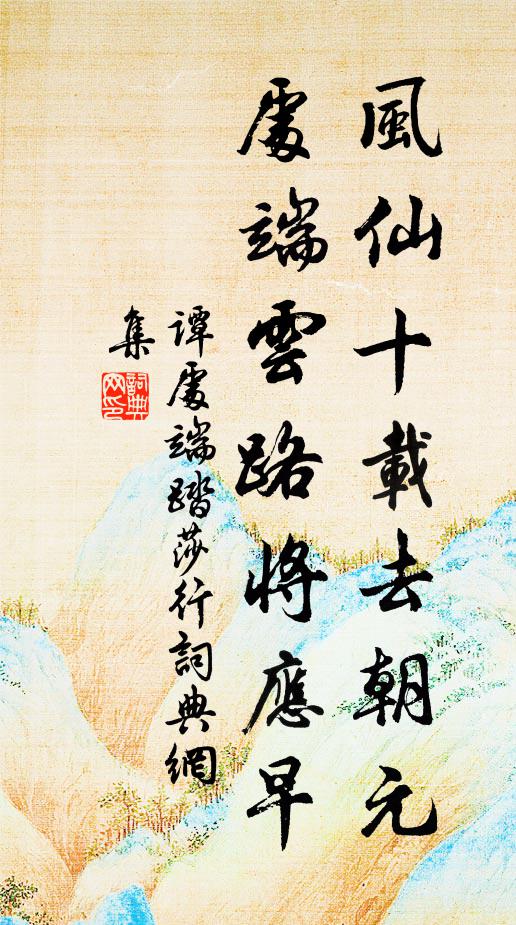 風仙十載去朝元
處端雲路將應早
譚處端踏莎行詞典網
集
詞典
网印